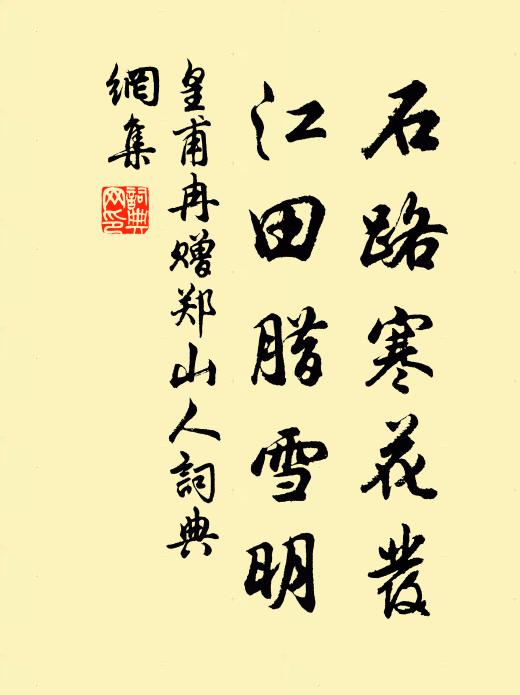 石路寒花發
江田腊雪明
皇甫冉赠郑山人詞典
網集
詞典
网印